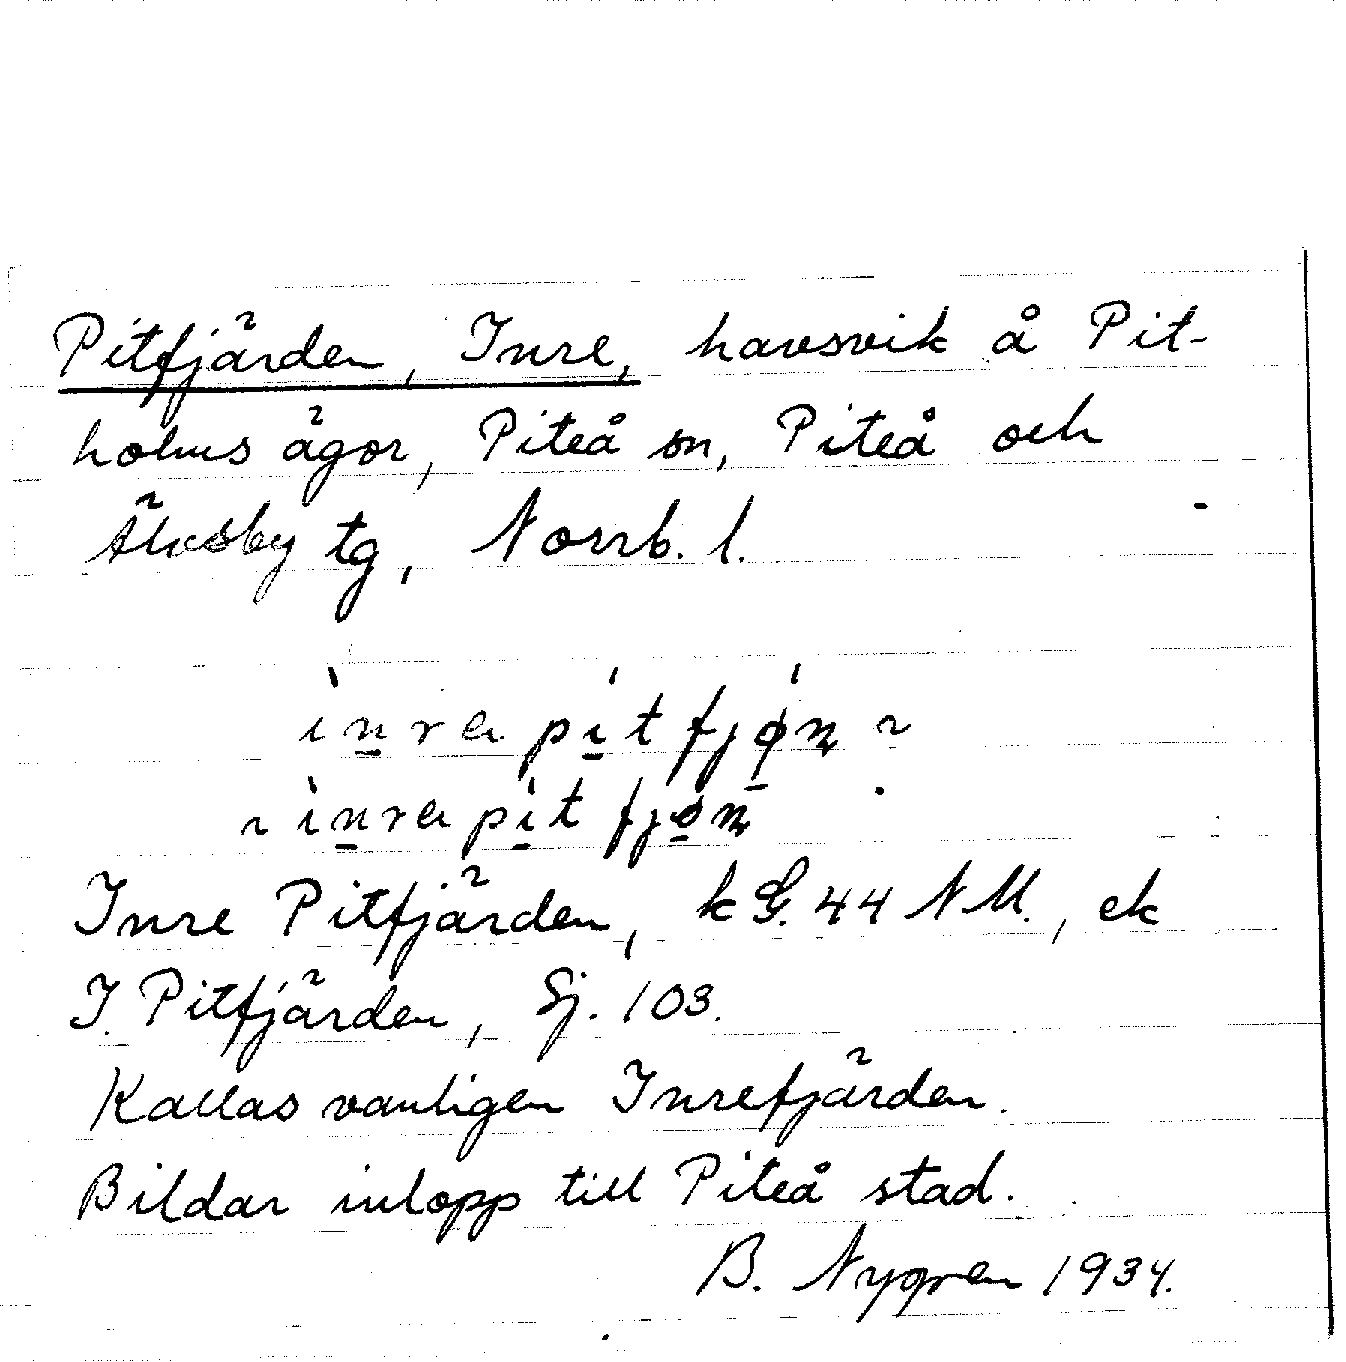 Pitfjärden, Inre, havsvik å Pit-
holms ägor, Piteå sn, Piteå och
Älvsby tg, Norrb. l.
ìnra pítfjǿn ~
~ ìnra pìtfjøn
Inre Pitfjärden, kG. 44 NM., ek
I. Pitfjärden, Sj. 103.
Kallas vanligen Inrefjärden.
Bildar inlopp till Piteå stad.
B. Nygren 1934.